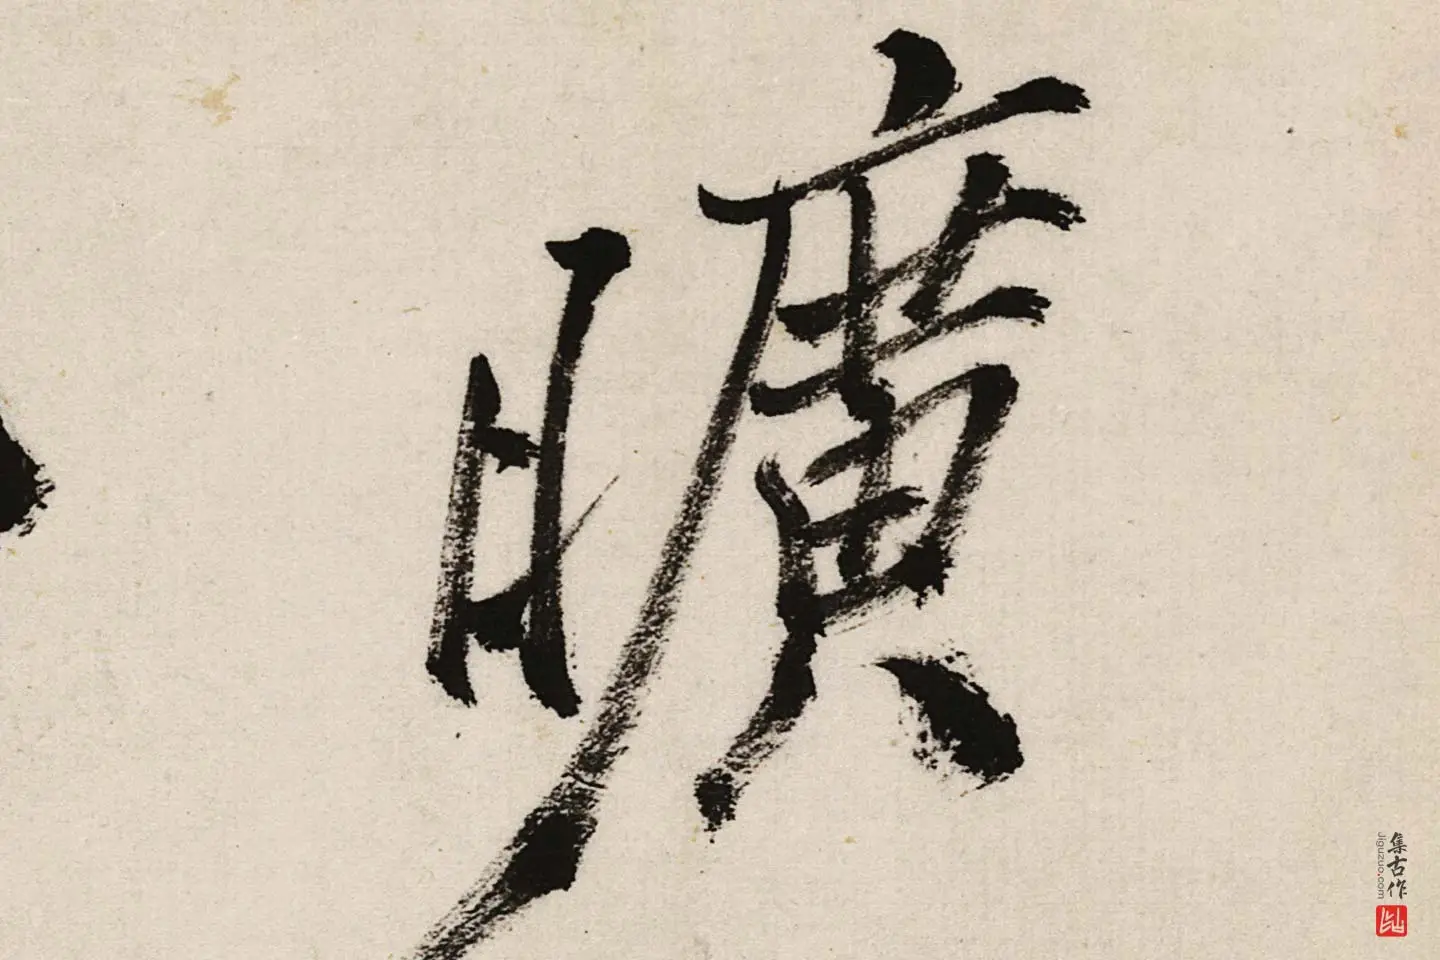 曠
集古作
Jiguzuo.com